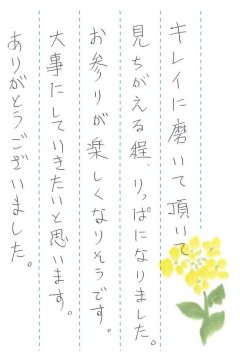 キレイに磨いて頂いて
見ちがえる程、りっぱになりました。
お参りが楽しくなりそうです。
大事にしていきたいと思います。
ありがとうございました。